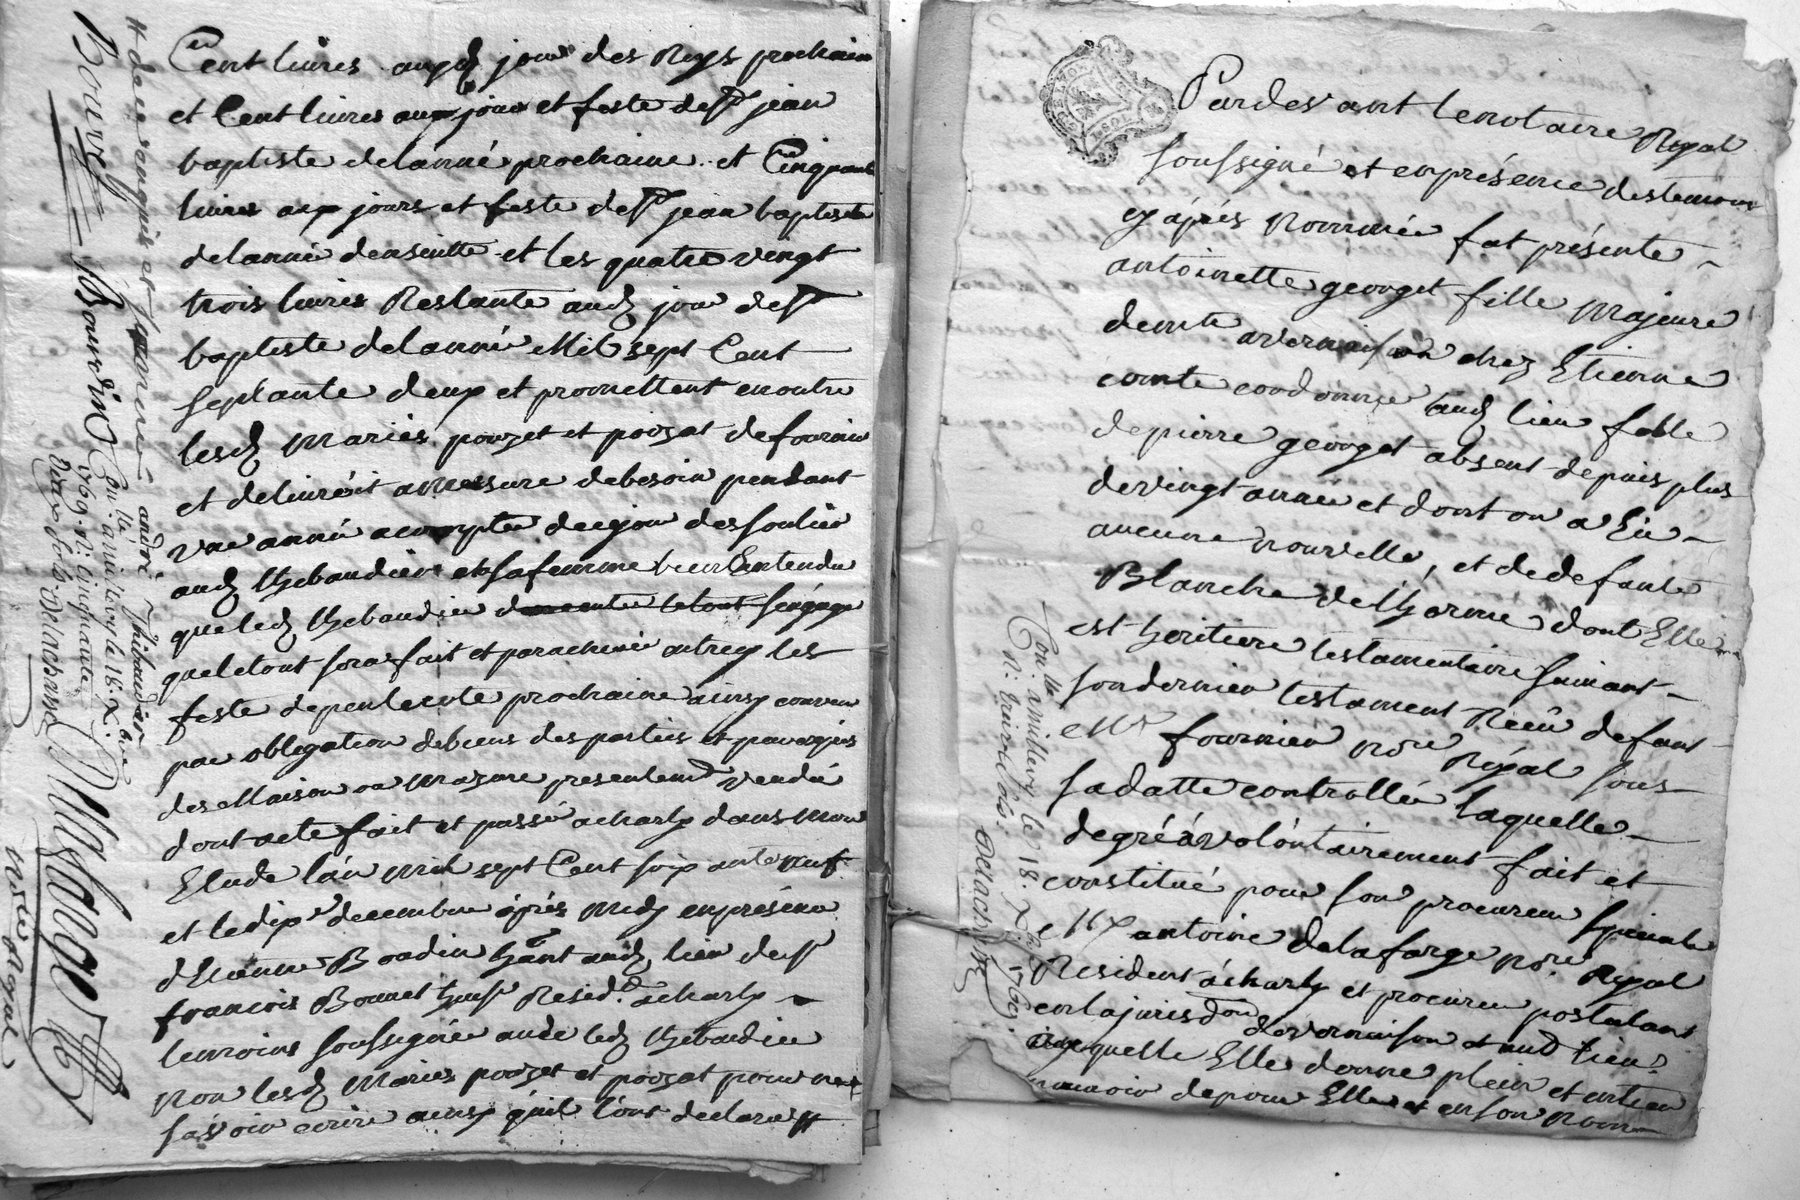 Cent livres audj jour des Roys prochain
et Cent livres aux jour et feste de St jean
baptiste delanné prochaine et Cinquante
livres aux jours et feste de St jean baptiste
delanné densuitte et les quatre vingt
trois livres Restante audj jour de St
baptiste delanné Mil sept Cent
septante deux et promettent enoutre
lesdj Mariés pouzet et poizat defournir
et delivré it amessure debesoin pendant
une anné acompter decejour dessoulier
audj thibaudier et safemme bien Entendu
queledj thibaudier
queletout sera fait et paracheué entrecy les
feste depentecote prochaine ainsy convenu
par obligation debiens des parties et
des Maison ou Mazure presentemt vendu
dont acte fait et passé acharly dans mon
Etude l'an mil sept Cent soixante neuf
et ledix decembre après Midy enprésence
d'Etienne Bordin hant audj lieu de St
françois Bonnet Residt acharly
temoins soussignée avec ledj thibaudier
non lesdj Mariés pouzet et poizat pour ne
sávoir ecrire ainsy qu'il l'ont declaré #
# de ce enquis et sommé
andré Thibaudier
Bourdin
Con: lé amillery le 18. xbre
1769. R: cinquante
Delacroix
Delafarge
nore Royal
Pardevant lenotaire Royal
soussigné et enprésence destemoins
cy áprés Nommée fut présente
antoinette georget fille Majeure
demte avernaison chez Etienne
comte cordonnier audj lieu fille
depierre georget absent depuis plus
devingt année et dont on a Eü
aucune nouvelle, et dedefunte
Blanche delhorme dont Elle
est heritiere testamentaire suivant
sondernier testament Reçû defunt
Me fournier nore Royal sous
sadatte controllée laquelle
degré á volóntairement fait et
constitué pour son procureur spéciale
Me antoine delafarge nore Royal
Résident ácharly et procureur postulant
enlajurisdon devernaison et aud lieu
auquelle Elle donne plein et entier
pouvoir depour Elle et enson Nom
Con: lé amillery le 18. Xbre 1769.
Delacroix